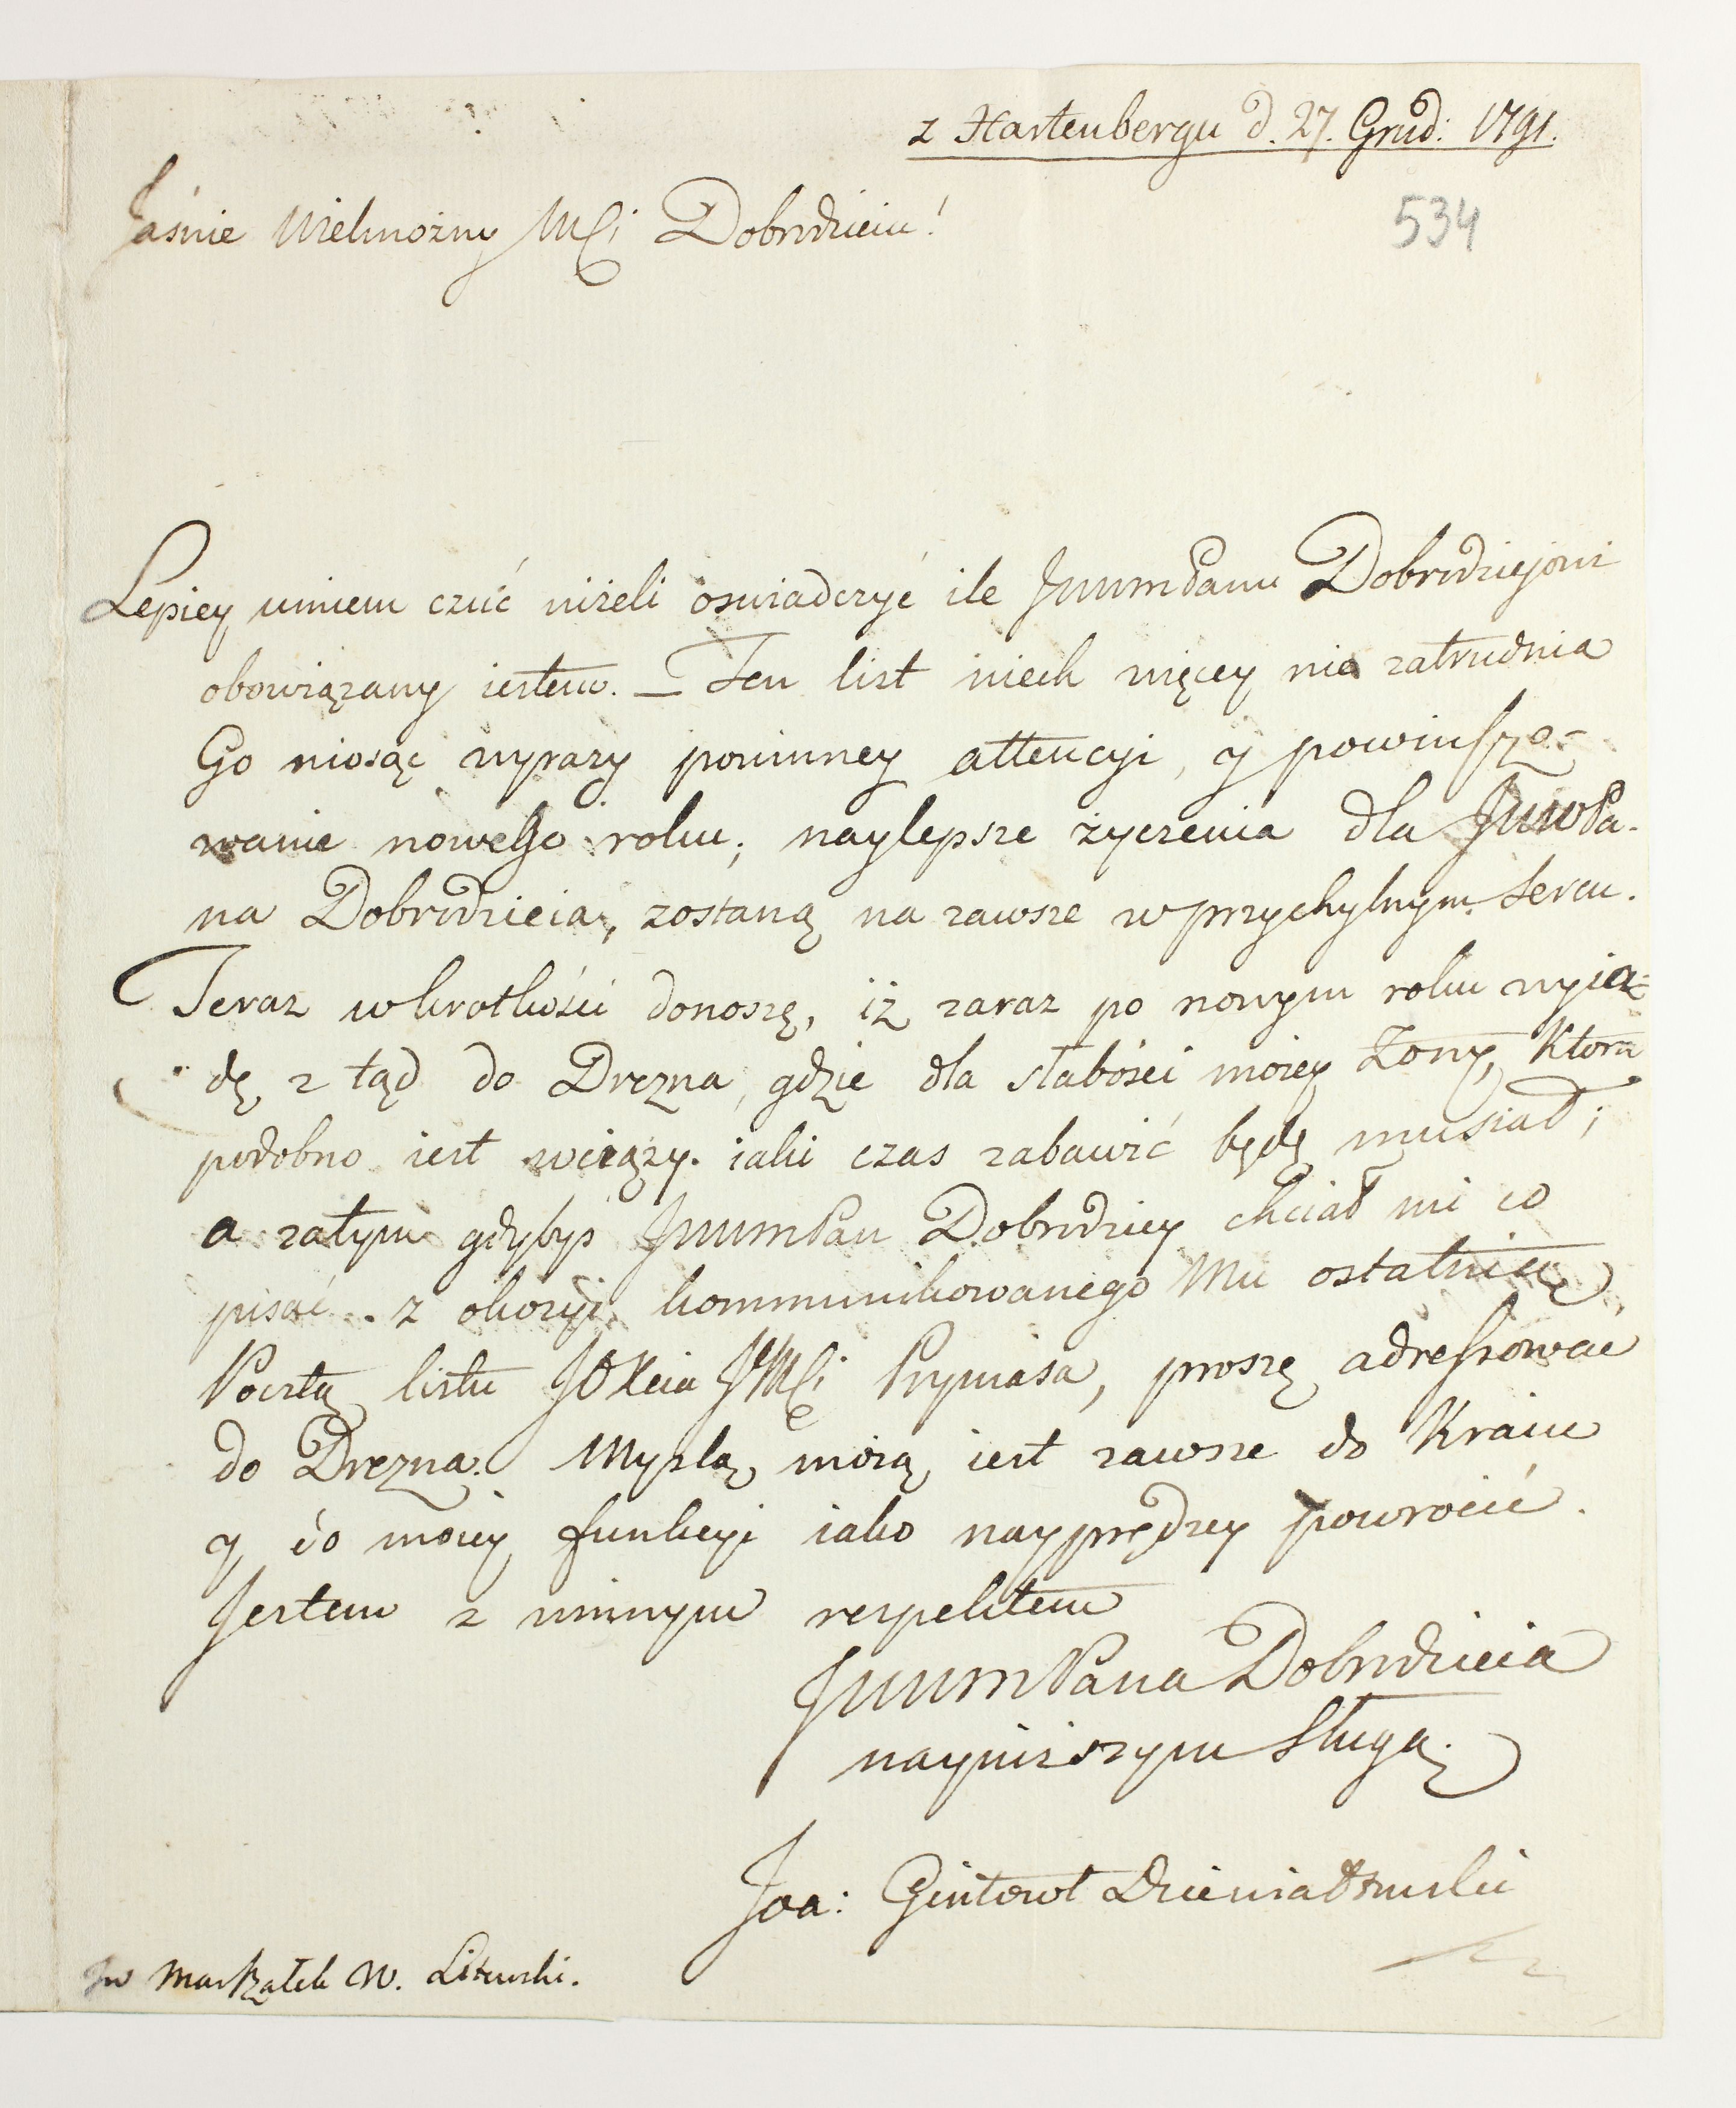 z Hartenbergu d. 27. Grud: 1791.
534
Jaśnie Wielmożny Mći Dobrodzieiu!
Lepiey umiem czuć niżeli oswiadczyć ile JWWMPanu Dobrodziejowi
obowiązany iestem. — Ten list niech więcey nie zatrudnia
Go niosąc wyrazy powinney attencyi, y powinszo-
wanie nowego roku; naylepsze życzenia dla JWWPa-
na Dobrodzieia, zostaną na zawsze w przychylnym sercu.
Teraz w krotkości donoszę, iż zaraz po nowym roku wyiaz-
dę z tąd do Drezna, gdzie dla słabości moiey Zony, ktora
podobno iest w ciąży. iaki czas zabawić będę musiał;
a zatym gdybyś JWWMPan Dobrodziey chciał mi co
pisać z okozyi kommunikowanego Mu ostatnią
Pocztą listu JOXcia JMći Prymasa, proszę adressować
do Drezna. Myslą moią iest zawsze do Kraiu
y do moiey funkcyi iako nayprędzey powrocić.
Jestem z winnym respektem
JWWMPana Dobrodzieia
nayniższym sługą.
Joa: Gintowt Dziewiałtowski
JW Marszałek W. Litewski.